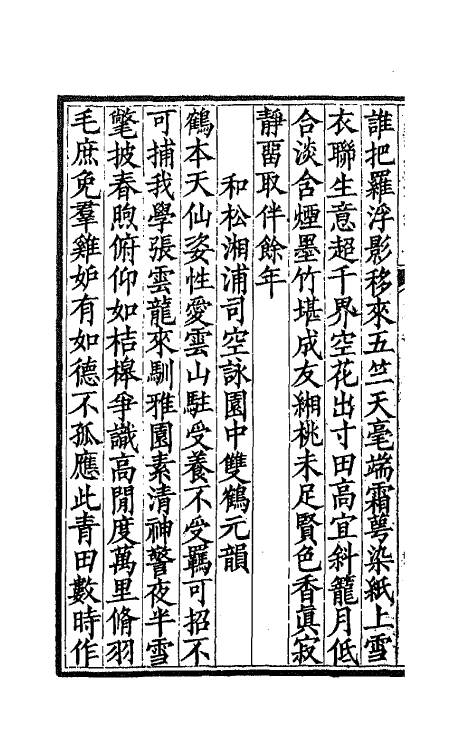 誰把羅浮影移來五竺天毫端霜萼染紙上雪
衣聯生意超千界空花出寸田高宜斜籠月低
合淡含煙墨竹堪成友緗桃未足賢色香眞寂
靜畱取伴餘年
和松湘浦司空詠園中雙鶴元韻
鶴本天仙姿性愛雲山駐受養不受羈可招不
可捕我學張雲龍來馴雅園素清神警夜半雪
氅披春煦俯仰如桔槹爭識高閒度萬里脩羽
毛庶免羣雞妒有如德不孤應此青田數時作